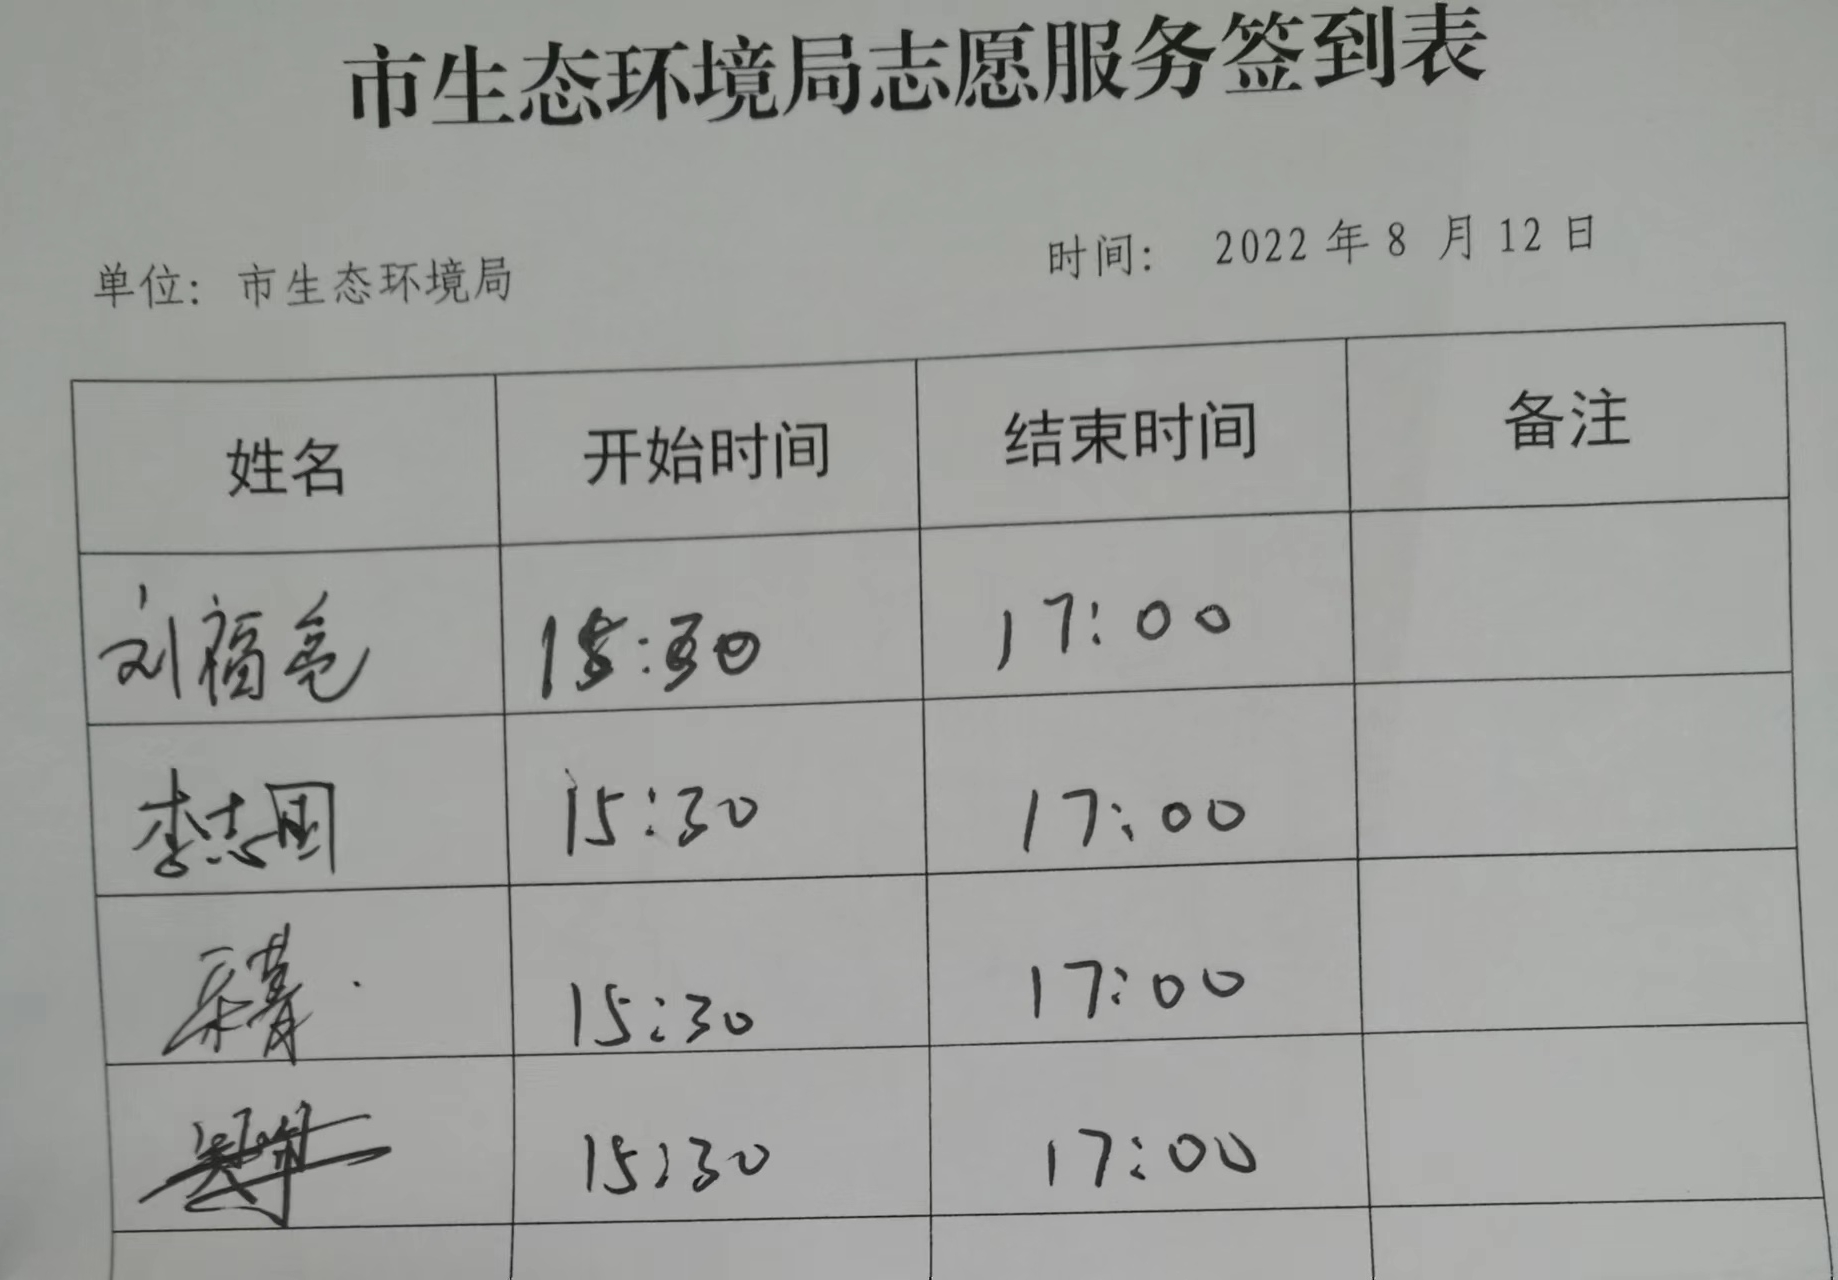 市生态环境局志愿服务签到表
单位：市生态环境局 时间： 2022年8 月12日
姓名 开始时间 结束时间 备注
刘福亮 15:30 17:00
李志国 15:30 17:00
15:30 17:00
15:30 17:00